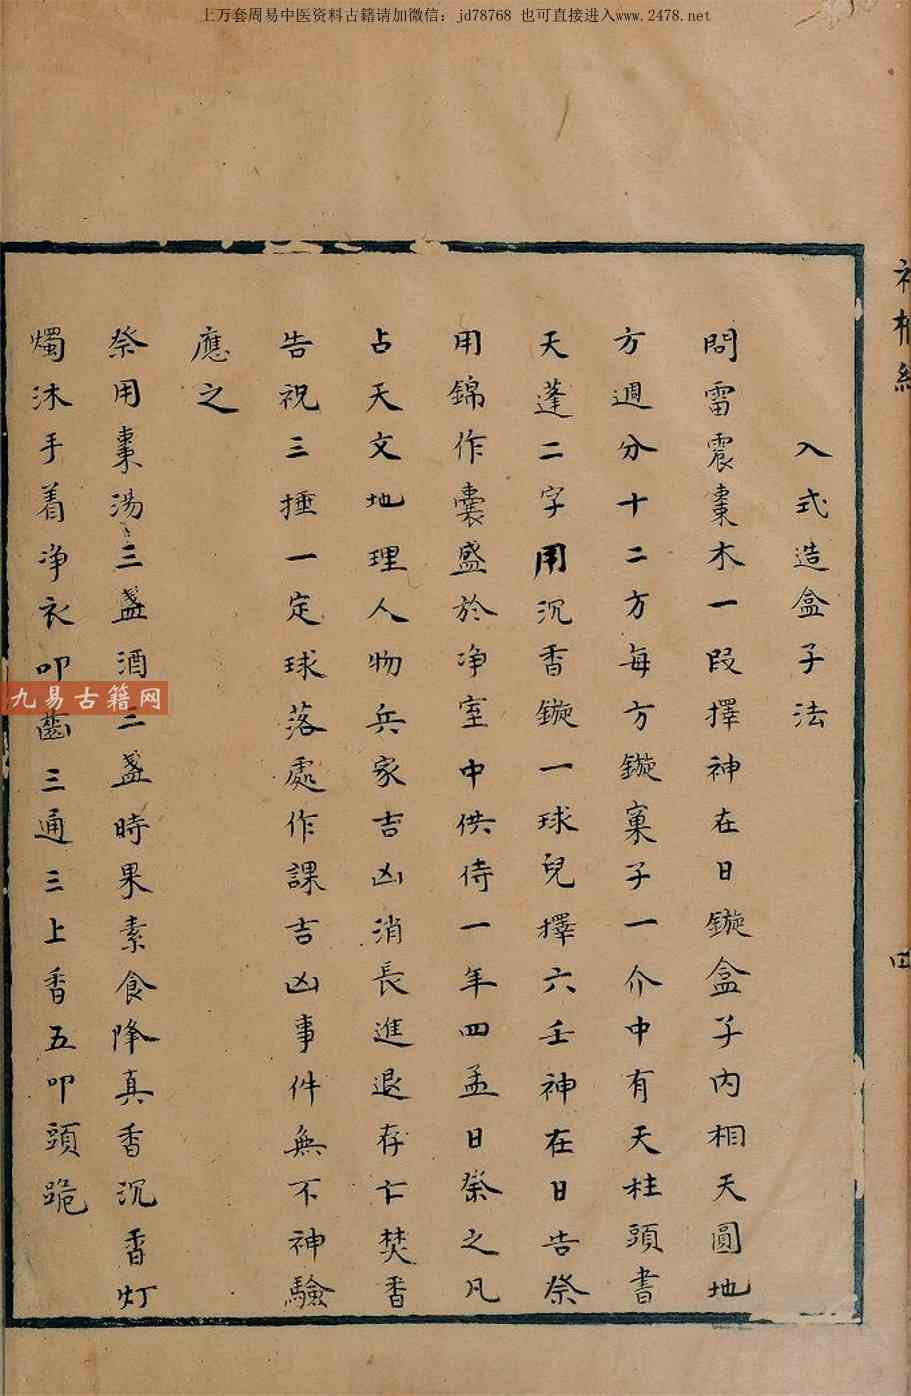 上万套周易中医资料古籍请加微信：jd78768 也可直接进入www.2478.net
入式造盒子法
問雷震棗木一段擇神在日鏇盒子内相天圓地
方週分十二方每方鏇窠子一介中有天柱頭書
天蓬二字用沉香鏇一球兒擇六壬神在日告祭
用錦作囊盛於净室中供侍一年四孟日祭之凡
占天文地理人物兵家吉凶消長進退存亡焚香
告祝三捶一定球落處作課吉凶事件無不神驗
應之
祭用棗湯三盞酒三盞時果素食降真香沉香灯
燭沐手着净衣叩齒三通三上香五叩頭跪
九易古籍网